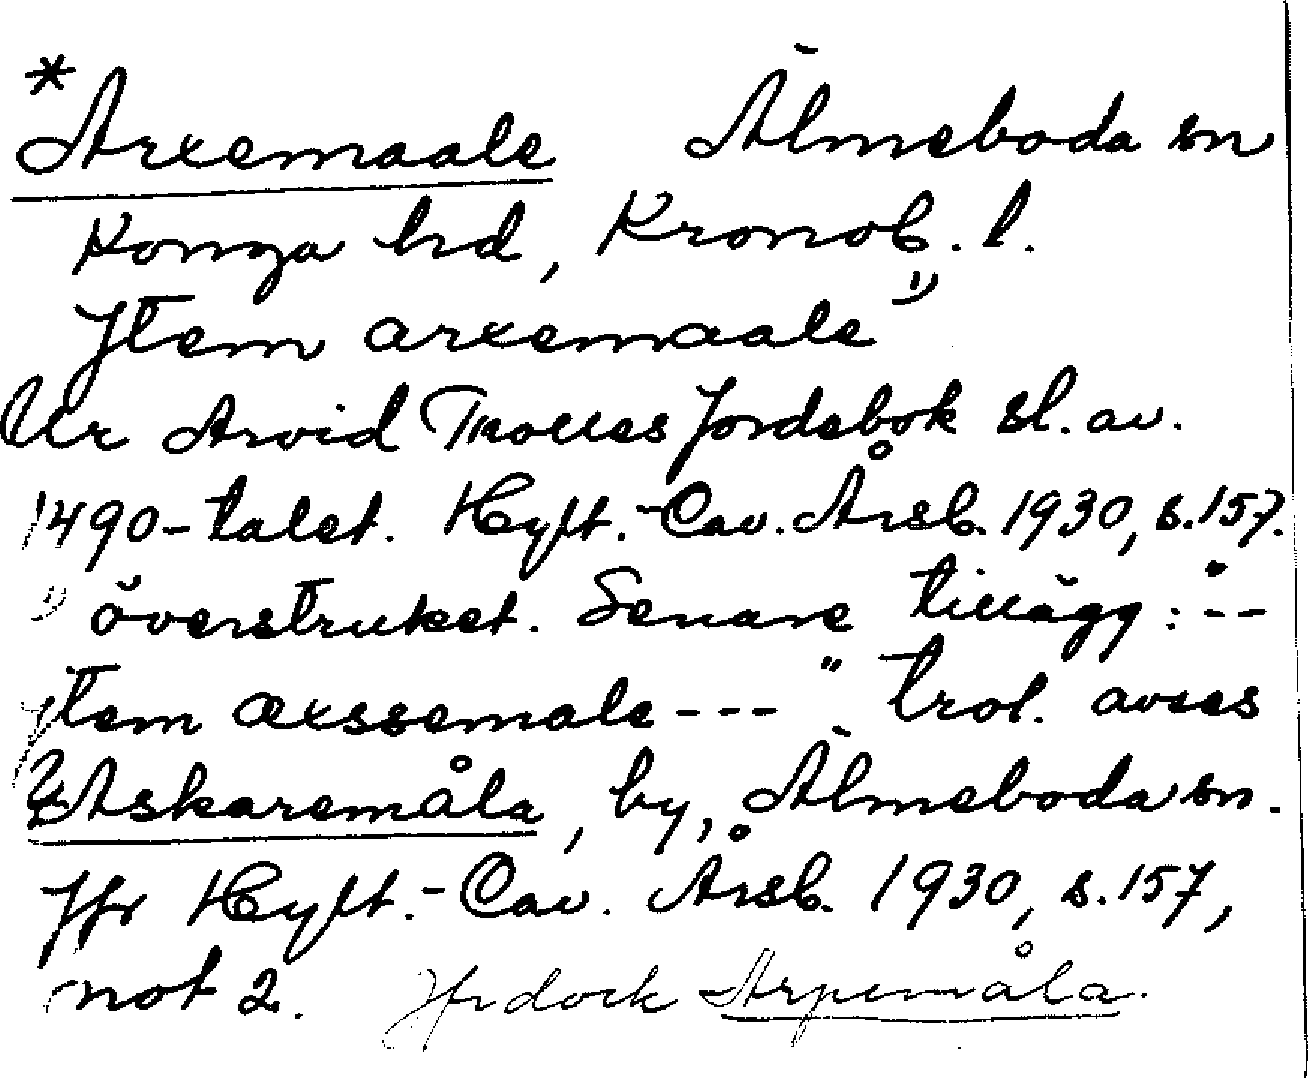 *Arxemaale Älmeboda sn
Konga hd, Kronob. l.
Jtem arxemaale 1)
Ur Arvid Trolles Jordebok sl. av.
1490-talet. Hylt.-Cav. Årsb. 1930, s.157.
1) överstruket. Senare tillägg: "--
jtem axssemale --- " trol. avses
? Askaremåla, by, Älmeboda sn.
Jfr Hylt.-Cav. Årsb. 1930, s.157,
not 2. Jfr dock Arpemåla.